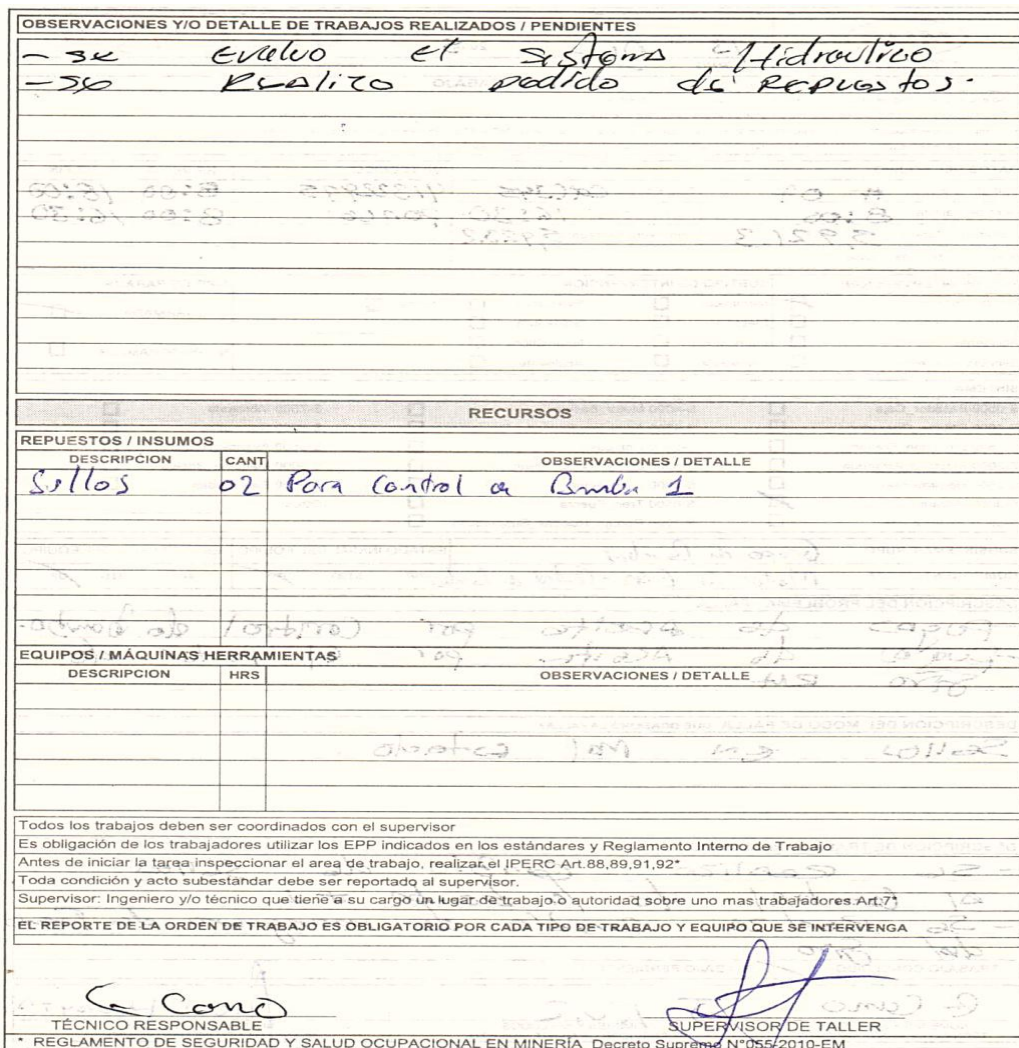 OBSERVACIONES Y/O DETALLE DE TRABAJOS REALIZADOS / PENDIENTES
- se Evaluo el Sistema Hidraulico
- se Realizo pedido de Repuestos.
RECURSOS
REPUESTOS / INSUMOS
DESCRIPCION CANT OBSERVACIONES / DETALLE
Sellos 02 Para Control de Bomba 1
EQUIPOS / MÁQUINAS HERRAMIENTAS
DESCRIPCION HRS OBSERVACIONES / DETALLE
Todos los trabajos deben ser coordinados con el supervisor
Es obligación de los trabajadores utilizar los EPP indicados en los estándares y Reglamento Interno de Trabajo
Antes de iniciar la tarea inspeccionar el area de trabajo, realizar el IPERC Art.88,89,91,92*
Toda condición y acto subestándar debe ser reportado al supervisor.
Supervisor: Ingeniero y/o técnico que tiene a su cargo un lugar de trabajo o autoridad sobre uno mas trabajadores Art.7*
EL REPORTE DE LA ORDEN DE TRABAJO ES OBLIGATORIO POR CADA TIPO DE TRABAJO Y EQUIPO QUE SE INTERVENGA
G Cano
TÉCNICO RESPONSABLE SUPERVISOR DE TALLER
* REGLAMENTO DE SEGURIDAD Y SALUD OCUPACIONAL EN MINERÍA Decreto Supremo N°055-2010-EM